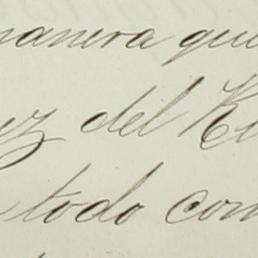 manera que
del
todo con